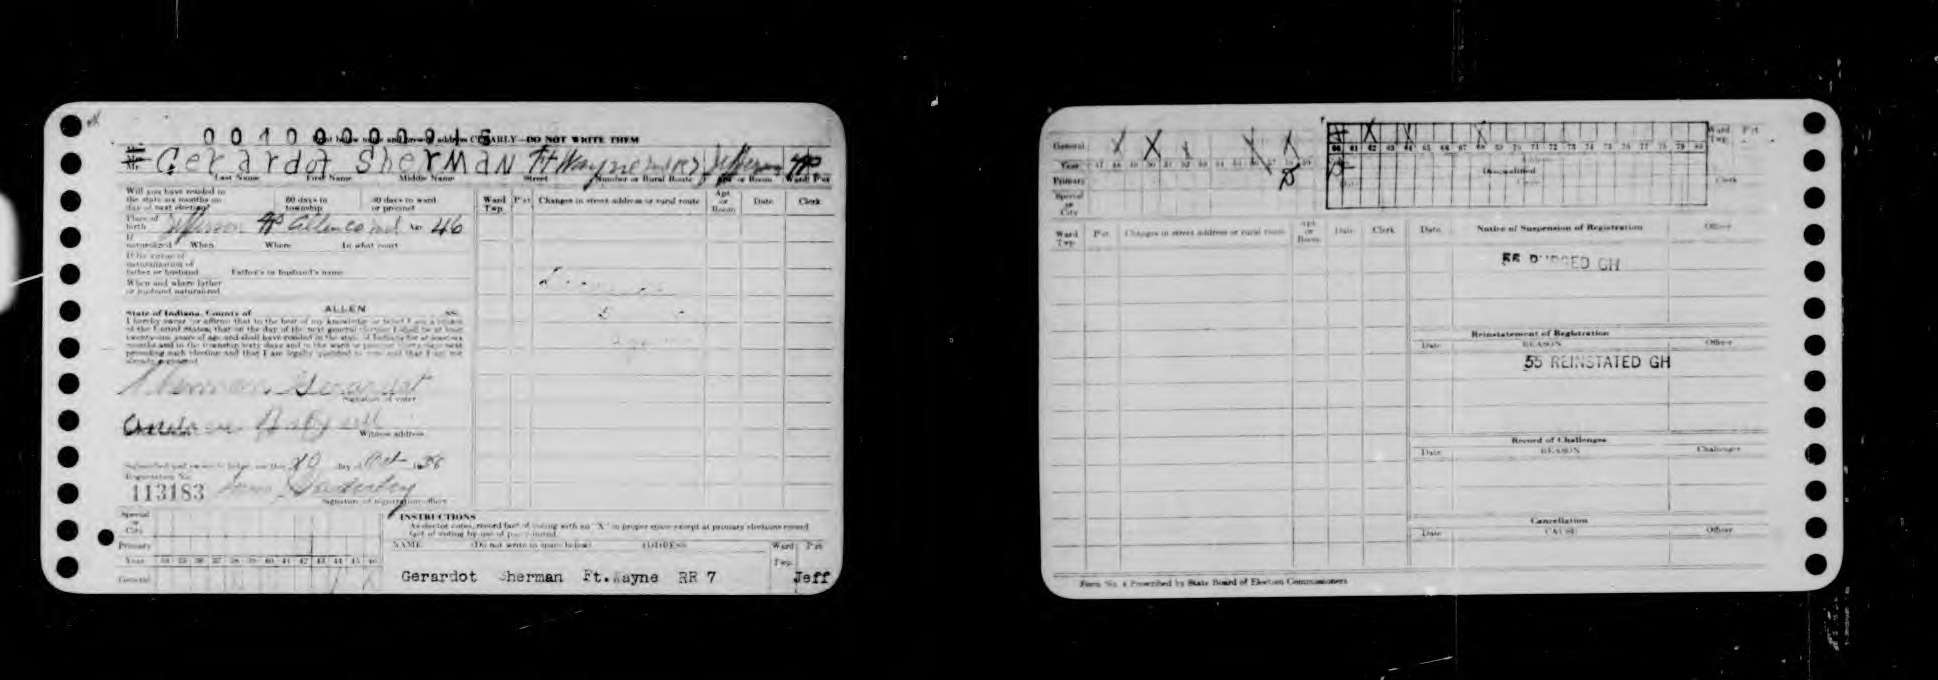 0010000091
Print below name and leave address CLEARLY—DO NOT WRITE THEM
Gerardot Sherman Ft Wayne Ind R R 7 Jefferson
Last Name First Name Middle Name Street Number or Rural Route Apt. or Room Ward Pct
Will you have resided in
the state six months on
day of next election?
60 days in
township
30 days in ward
or precinct
Place of
birth Jefferson Allen Co Ind. Age 46
If
naturalized When Where In what court
If by virtue of
naturalization of
father or husband Father's or husband's name
When and where father
or husband naturalized
State of Indiana, County of ALLEN SS.
I hereby swear (or affirm) that to the best of my knowledge or belief I am a citizen
of the United States; that on the day of the next general election I shall be at least
twenty-one years of age and shall have resided in the state of Indiana for at least six
months and in the township sixty days and in the ward or precinct thirty days next
preceding such election and that I am legally qualified to vote and that I am not
already registered
Sherman Gerardot
Signature of voter
Witness address
Subscribed and sworn to before me this 20 day of Oct 19
Registration No.
113183
Signature of registration officer
Special
or
City
Primary
Year 34 35 36 37 38 39 40 41 42 43 44 45 46
General
Ward
Twp. Pct Changes in street address or rural route Apt.
or
Room Date Clerk
INSTRUCTIONS
As elector votes, record fact of voting with an "X" in proper space except at primary elections record
fact of voting by use of party initial
NAME (Do not write in space below) ADDRESS Ward Pct
Twp.
Gerardot Sherman Ft.Wayne RR 7 Jeff
General
Year 47 48 49 50 51 52 53 54 55 56 57 58 59
Primary
Special
or
City
60 61 62 63 64 65 66 67 68 69 70 71 72 73 74 75 76 77 78 79 80
Disqualified
Ward
Twp. Pct
Clerk
Ward
Twp. Pct Changes in street address or rural route Apt.
or
Room Date Clerk
Date Notice of Suspension of Registration Officer
55 PURGED GH
Reinstatement of Registration
Date REASON Officer
55 REINSTATED GH
Record of Challenges
Date REASON Challenger
Cancellation
Date CAUSE Officer
Form No. 4 Prescribed by State Board of Election Commissioners